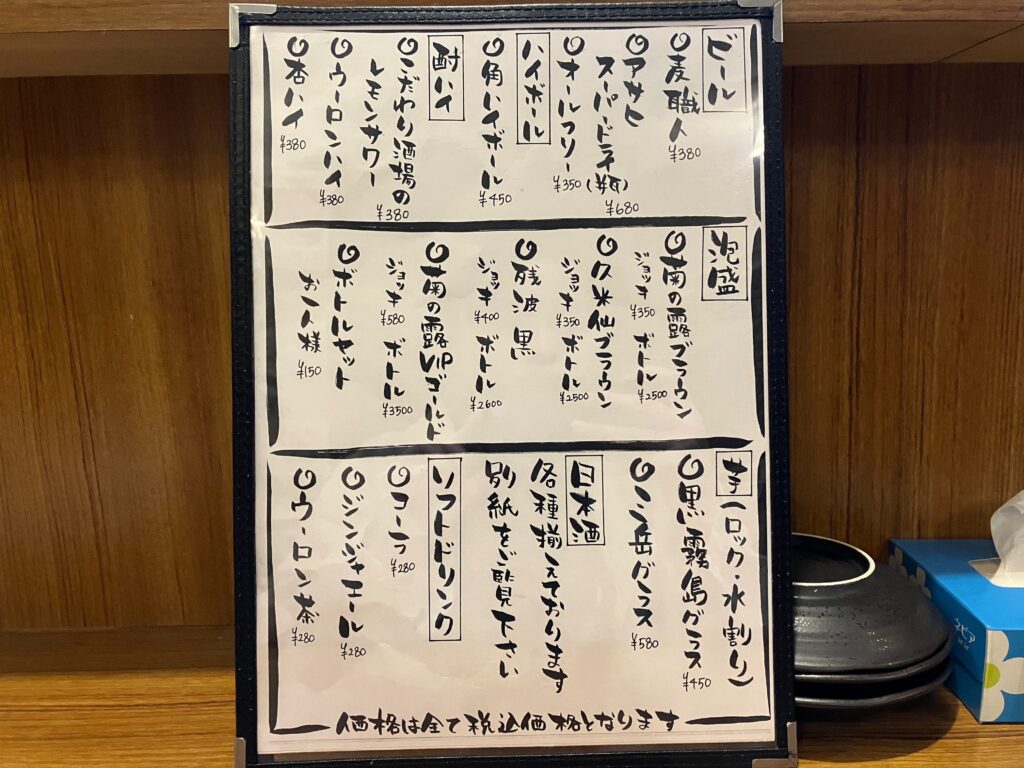 ビール
麦職人
¥380
アサヒ
スーパードライ(中瓶)
¥680
オールフリー
¥350
ハイボール
角ハイボール
¥450
酎ハイ
こだわり酒場の
レモンサワー
¥380
ウーロンハイ
¥380
杏ハイ
¥380
泡盛
菊の露ブラウン
ジョッキ ¥350 ボトル ¥2500
久米仙ブラウン
ジョッキ ¥350 ボトル ¥2500
残波 黒
ジョッキ ¥400 ボトル ¥2600
菊の露VIPゴールド
ジョッキ ¥580 ボトル ¥3500
ボトルセット
お一人様 ¥150
芋(ロック・水割り)
黒霧島グラス
¥450
三岳グラス
¥580
日本酒
各種揃えております
別紙をご覧下さい
ソフトドリンク
コーラ
¥280
ジンジャエール
¥280
ウーロン茶
¥280
価格は全て税込価格となります
ネピア